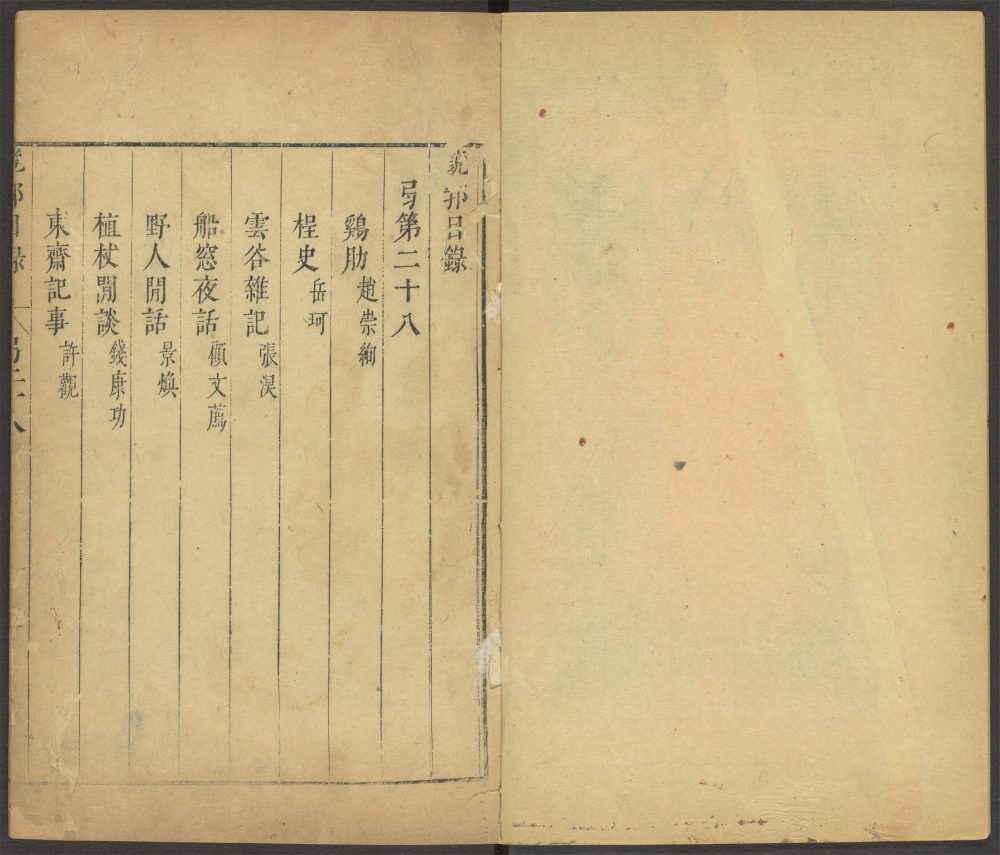 說郛目錄
弓第二十八
鷄肋 趙崇絢
桯史 岳珂
雲谷雜記 張淏
船窓夜話 顧文薦
野人閒話 景煥
植杖閒談 錢康功
東齋記事 許觀
說郛目錄 弓二十八